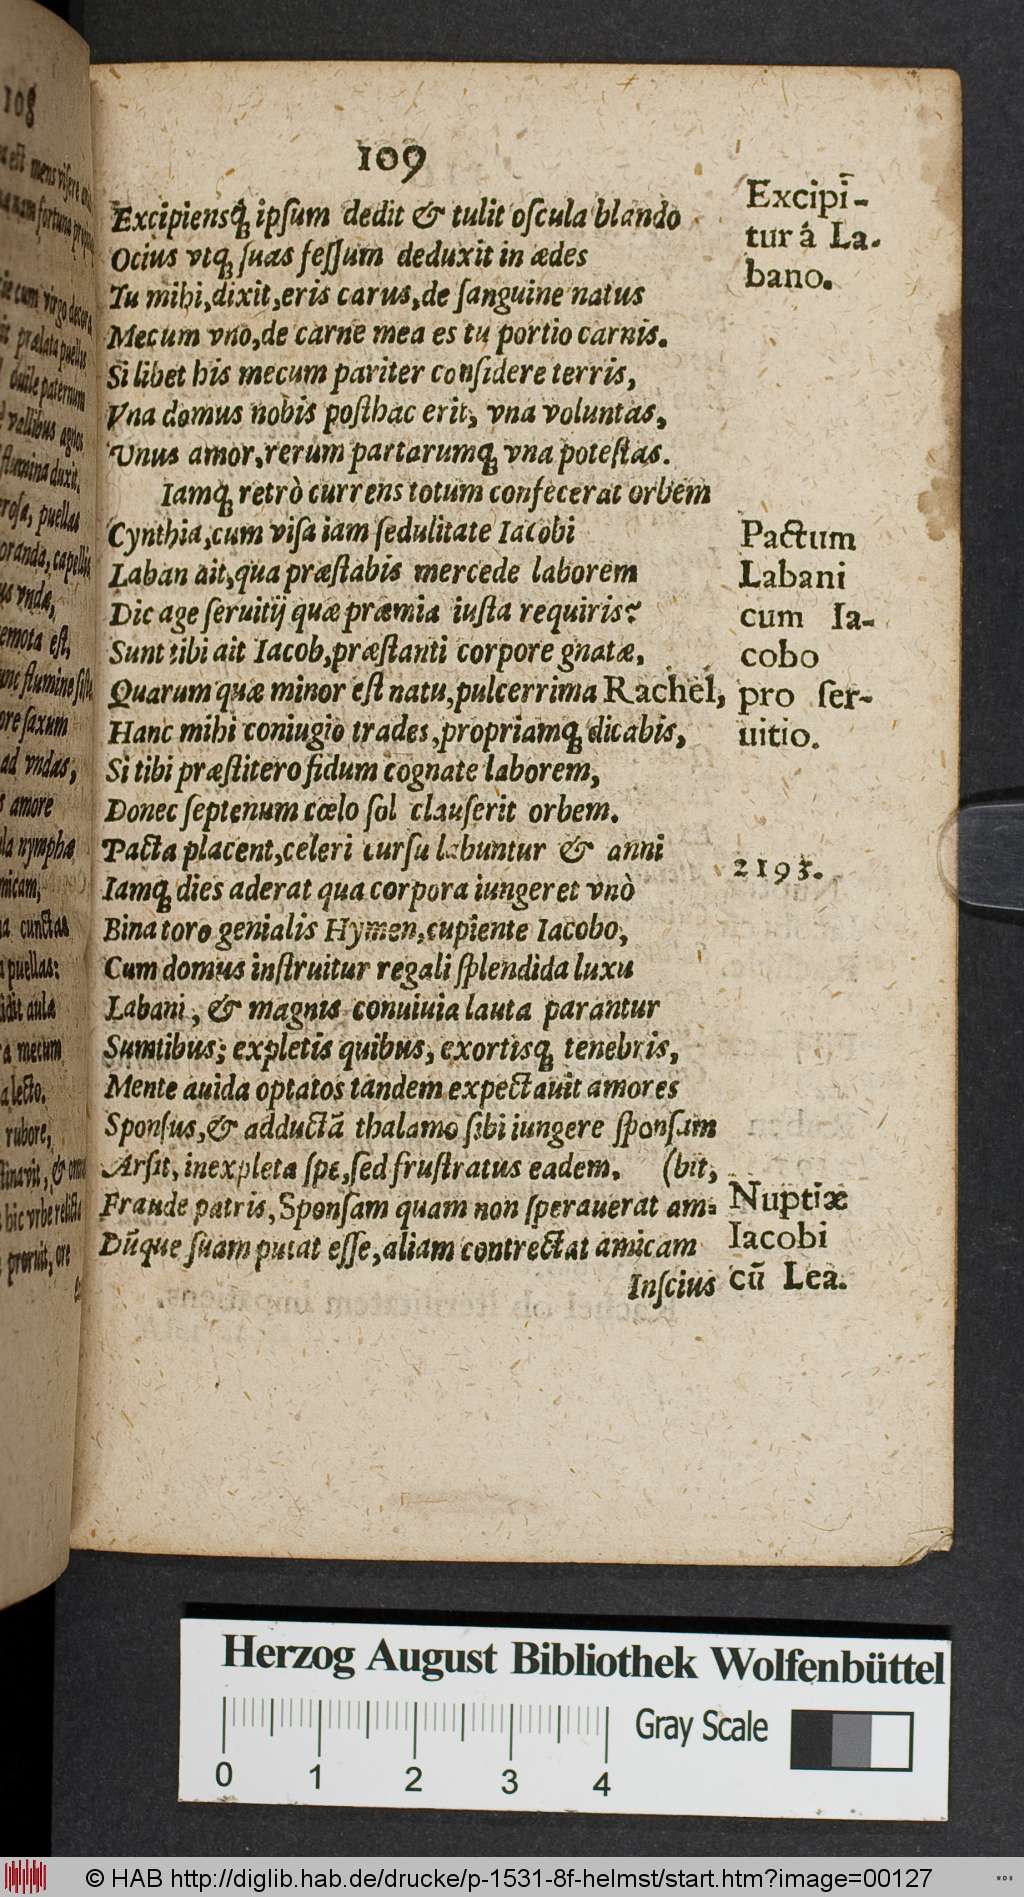 109
Excipiensq́ꝫ ipſum dedit & tulit oſcula blando
Ocius vtqꝫ ſuas feſſum deduxit in ædes
Tu mihi, dixit, eris carus, de ſanguine natus
Mecum vno, de carne mea es tu portio carnis.
Si libet his mecum pariter conſidere terris,
Vna domus nobis poſthac erit, vna voluntas,
Unus amor, rerum partarumqꝫ vna poteſtas.
Iamqꝫ retrò currens totum confecerat orbem
Cynthia, cum viſa iam ſedulitate Iacobi
Laban ait, qua præſtabis mercede laborem
Dic age ſeruitij quæ præmia iuſta requiris?
Sunt tibi ait Iacob, præſtanti corpore gnatæ,
Quarum quæ minor eſt natu, pulcerrima Rachel,
Hanc mihi coniugio trades, propriamqꝫ dicabis,
Si tibi præſtitero fidum cognate laborem,
Donec ſeptenum cœlo ſol clauſerit orbem.
Pacta placent, celeri curſu labuntur & anni
Iamqꝫ dies aderat qua corpora iungeret vnò
Bina toro genialis Hymen, cupiente Iacobo,
Cum domus inſtruitur regali ſplendida luxu
Labani, & magnis conuiuia lauta parantur
Sumtibus; expletis quibus, exortisqꝫ tenebris,
Mente auida optatos tandem expectauit amores
Sponſus, & adductā thalamo ſibi iungere ſponſam
Arſit, inexpleta ſpe, ſed fruſtratus eadem, (bit,
Fraude patris, Sponſam quam non ſperauerat am-
Dūque ſuam putat eſſe, aliam contrectat amicam
Inſcius
Excipī-
tur á La-
bano.
Pactum
Labani
cum Ia-
cobo
pro ſer-
uitio.
2193.
Nuptiæ
Iacobi
cū Lea.
108
Herzog August Bibliothek Wolfenbüttel
0 1 2 3 4
Gray Scale
© HAB http://diglib.hab.de/drucke/p-1531-8f-helmst/start.htm?image=00127